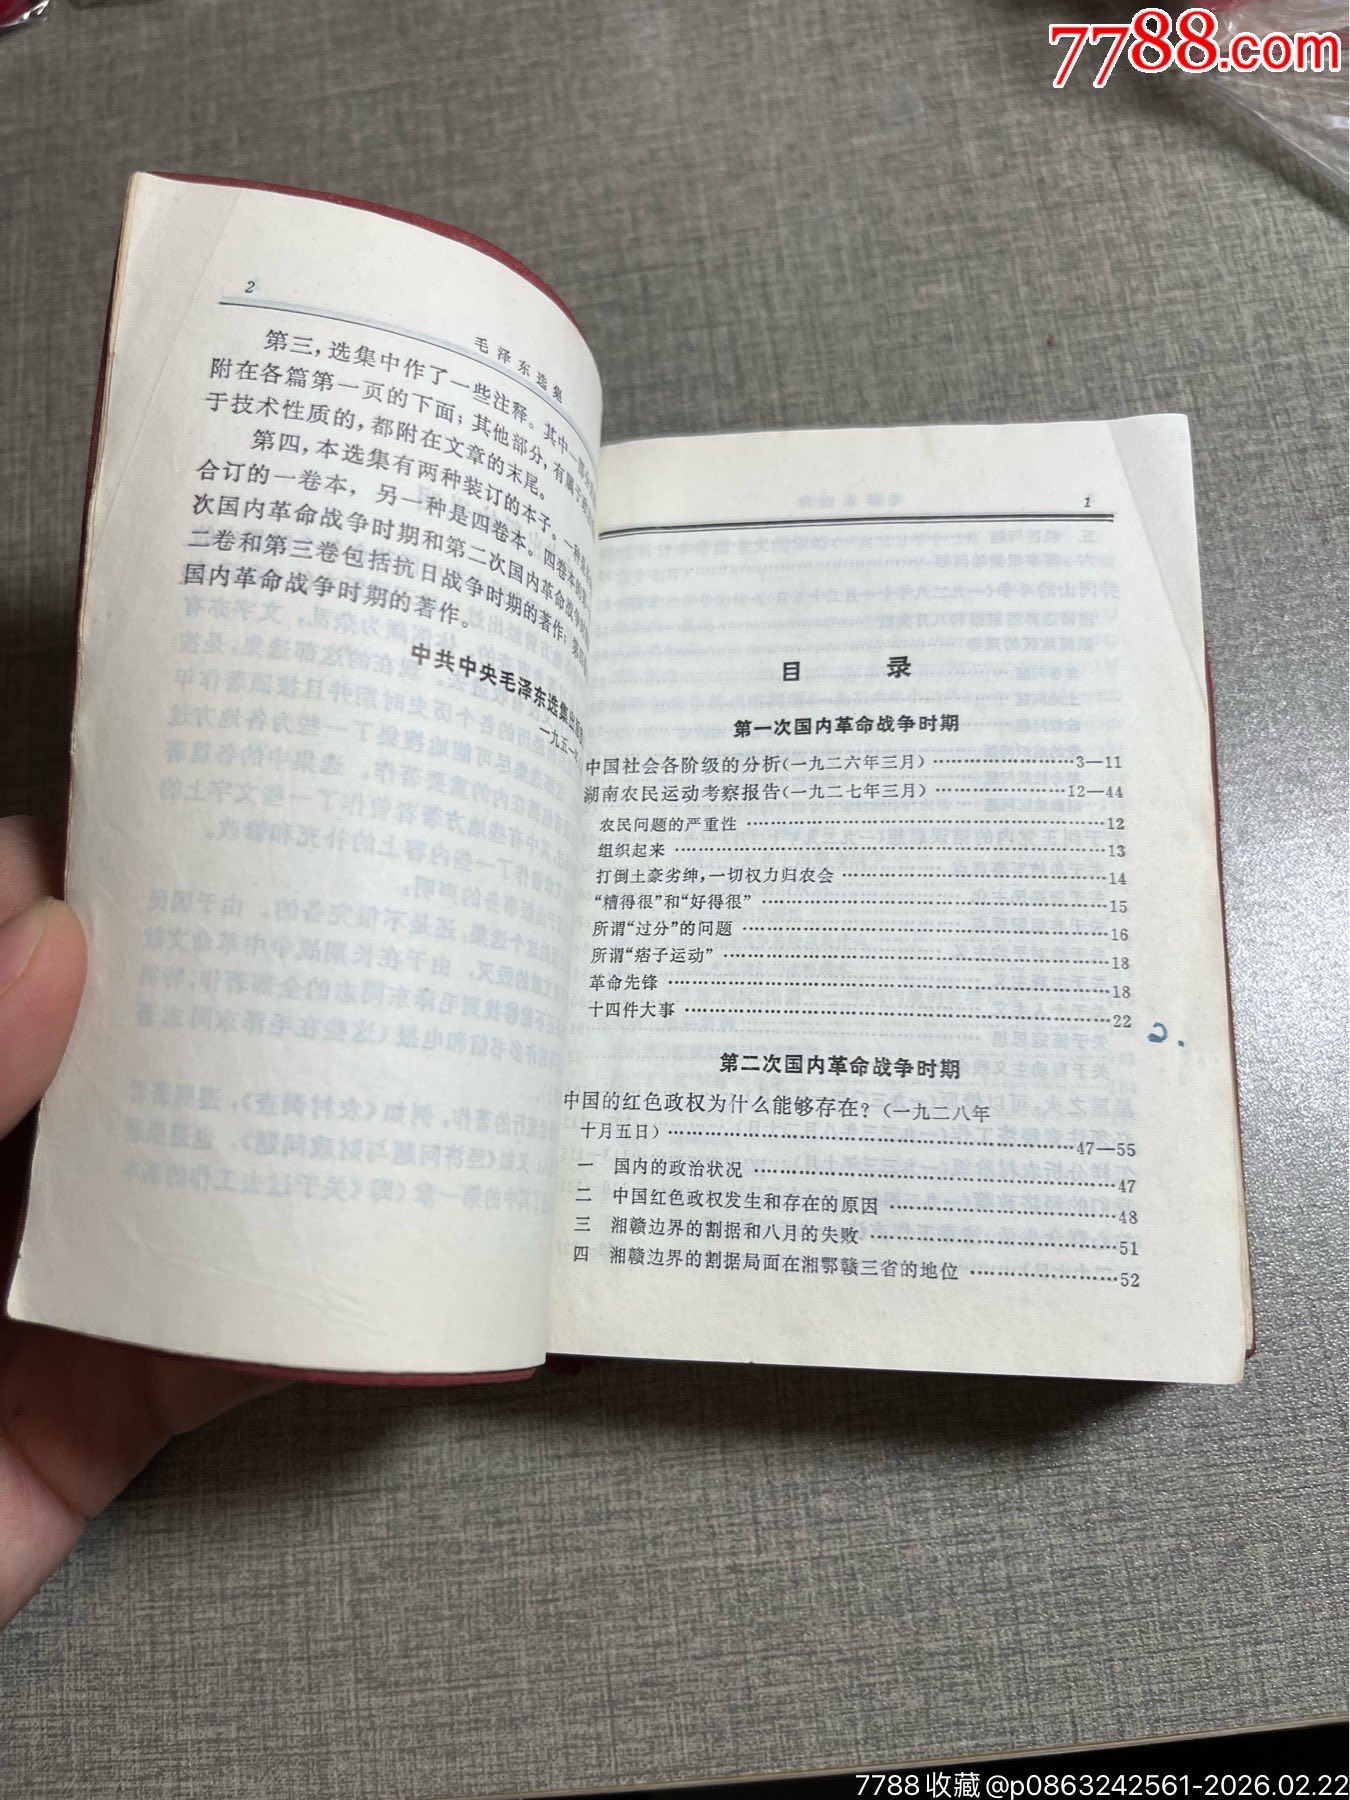 7788.com
2
毛泽东选集
第三，选集中作了一些注释。其中一部分
附在各篇第一页的下面；其他部分，有属于
于技术性质的，都附在文章的末尾。
第四，本选集有两种装订的本子。一种是
合订的一卷本，另一种是四卷本。四卷本的第
次国内革命战争时期和第二次国内革命战争
二卷和第三卷包括抗日战争时期的著作；第
国内革命战争时期的著作。
中共中央毛泽东选集出版
一九五一年
1
目录
第一次国内革命战争时期
中国社会各阶级的分析（一九二六年三月）……………………3—11
湖南农民运动考察报告（一九二七年三月）……………………12—44
农民问题的严重性……………………12
组织起来……………………13
打倒土豪劣绅，一切权力归农会……………………14
“糟得很”和“好得很”……………………15
所谓“过分”的问题……………………16
所谓“痞子运动”……………………18
革命先锋……………………18
十四件大事……………………22
第二次国内革命战争时期
中国的红色政权为什么能够存在？（一九二八年
十月五日）……………………47—55
一 国内的政治状况……………………47
二 中国红色政权发生和存在的原因……………………48
三 湘赣边界的割据和八月的失败……………………51
四 湘赣边界的割据局面在湘鄂赣三省的地位……………………52
7788收藏@p0863242561-2026.02.22